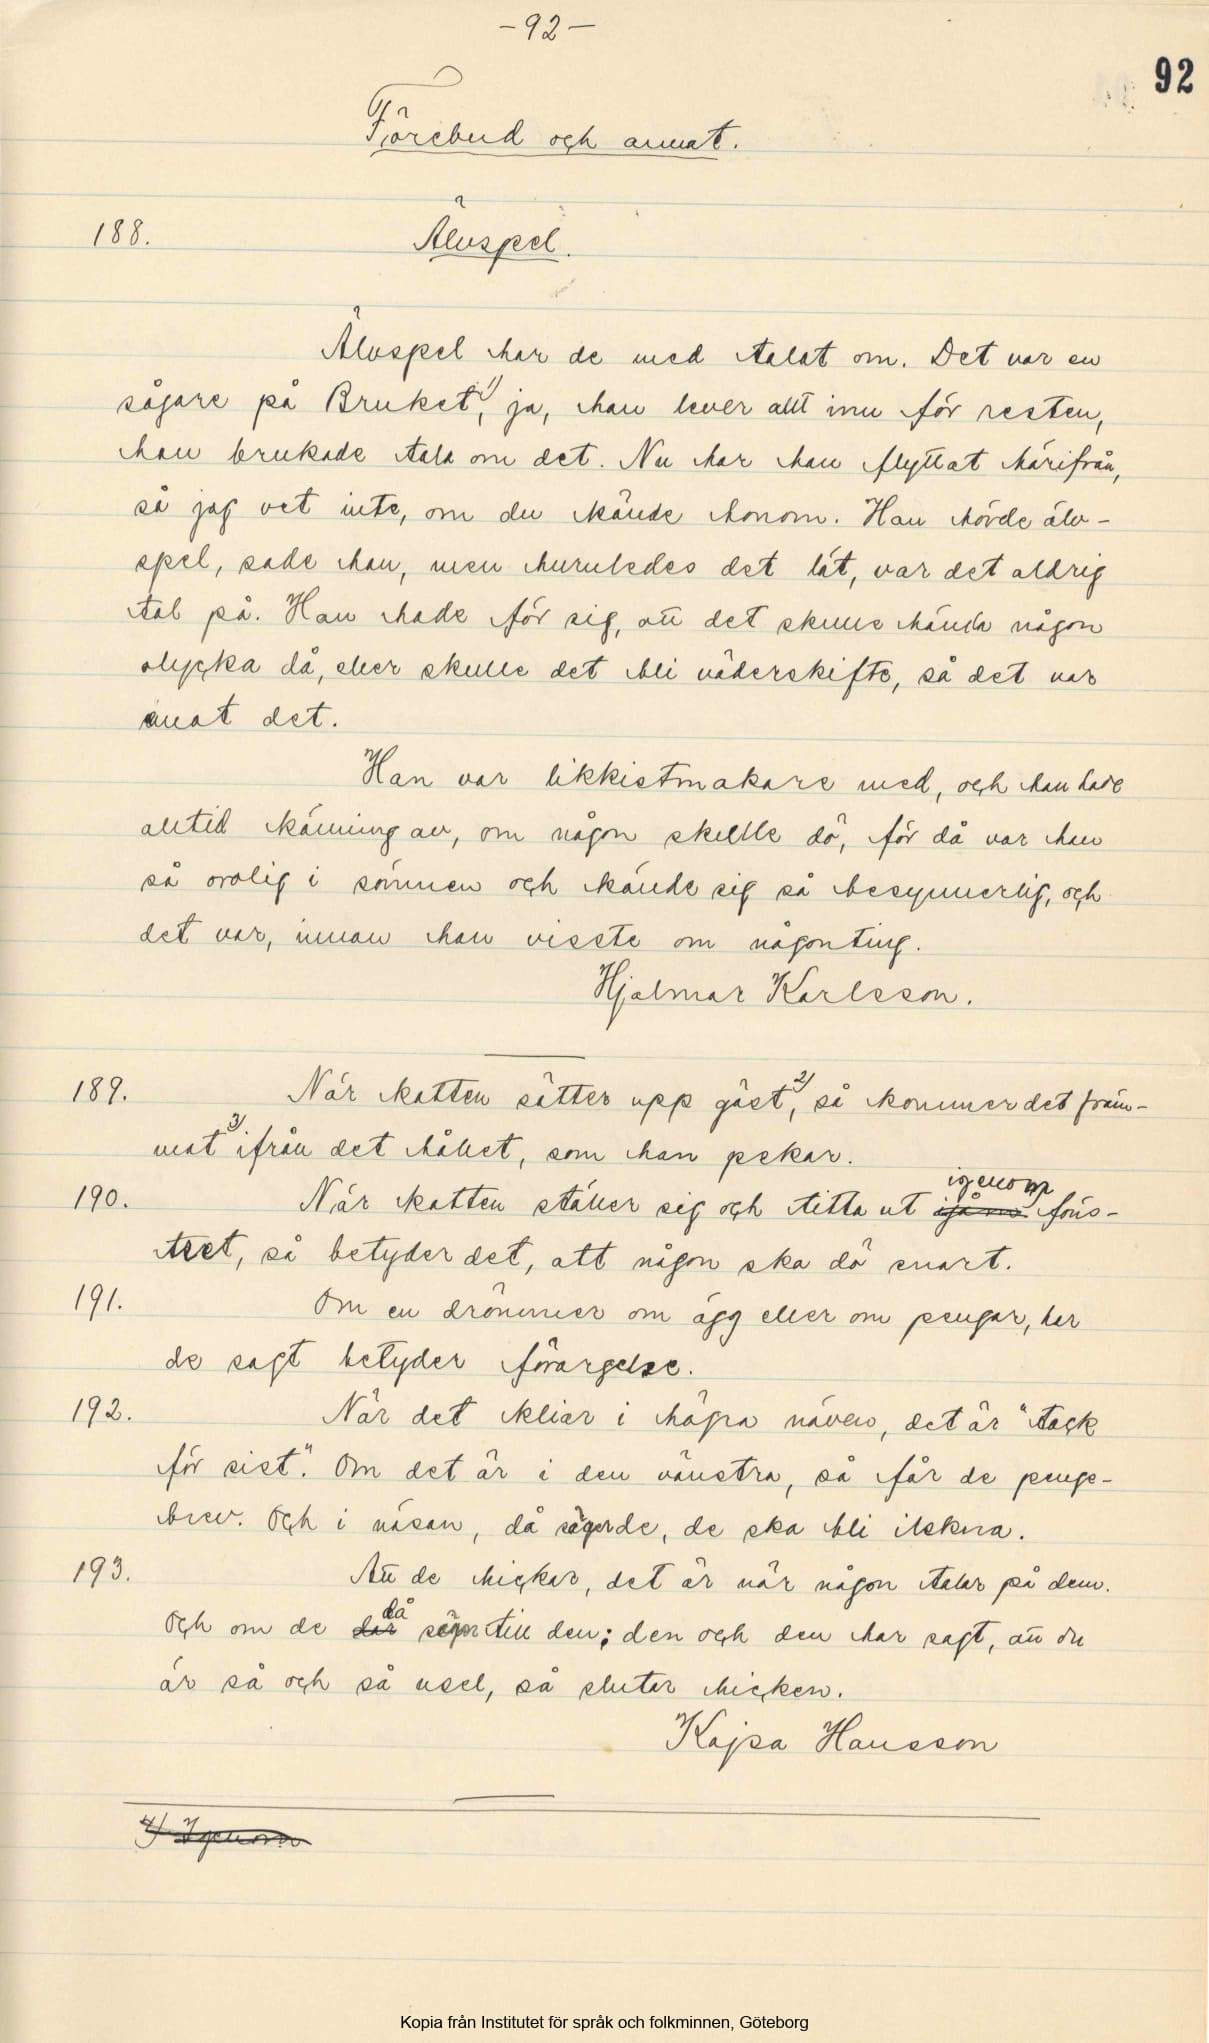 -92-
92
Förebud och annat.
188. Älvspel.
Älvspel har de med talat om. Det var en
sågare på Bruket,1) ja, han lever allt innu för resten,
han brukade tala om det. Nu har han flyttat härifrån,
så jag vet inte, om du kände honom. Han hörde älv-
spel, sade han, men huruledes det lät, var det aldrig
tal på. Han hade för sig, att det skulle hända någon
olycka då, eller skulle det bli väderskifte, så det var
anat det.
Han var likkistmakare med, och han hade
alltid känning av, om någon skulle dö, för då var han
så orolig i sömnen och kände sig så besynnerlig, och
det var, innan han visste om någonting.
Hjalmar Karlsson.
189. När katten sätter upp gäst,2) så kommer det främ-
mat3) ifrån det hållet, som han pekar.
190. När katten ställer sig och titta ut igenom föns-
tret, så betyder det, att någon ska dö snart.
191. Om en drömmer om ägg eller om pengar, har
de sagt betyder förargelse.
192. När det kliar i högra näven, det är "tack
för sist". Om det är i den vänstra, så får de penge-
brev. Och i näsan, då säger de, de ska bli ilskna.
193. Att de hickar, det är när någon talar på dem.
Och om de där då säger till den; den och den har sagt, att du
är så och så usel, så slutar hicken.
Kajsa Hansson
1) Igenom
Kopia från Institutet för språk och folkminnen, Göteborg